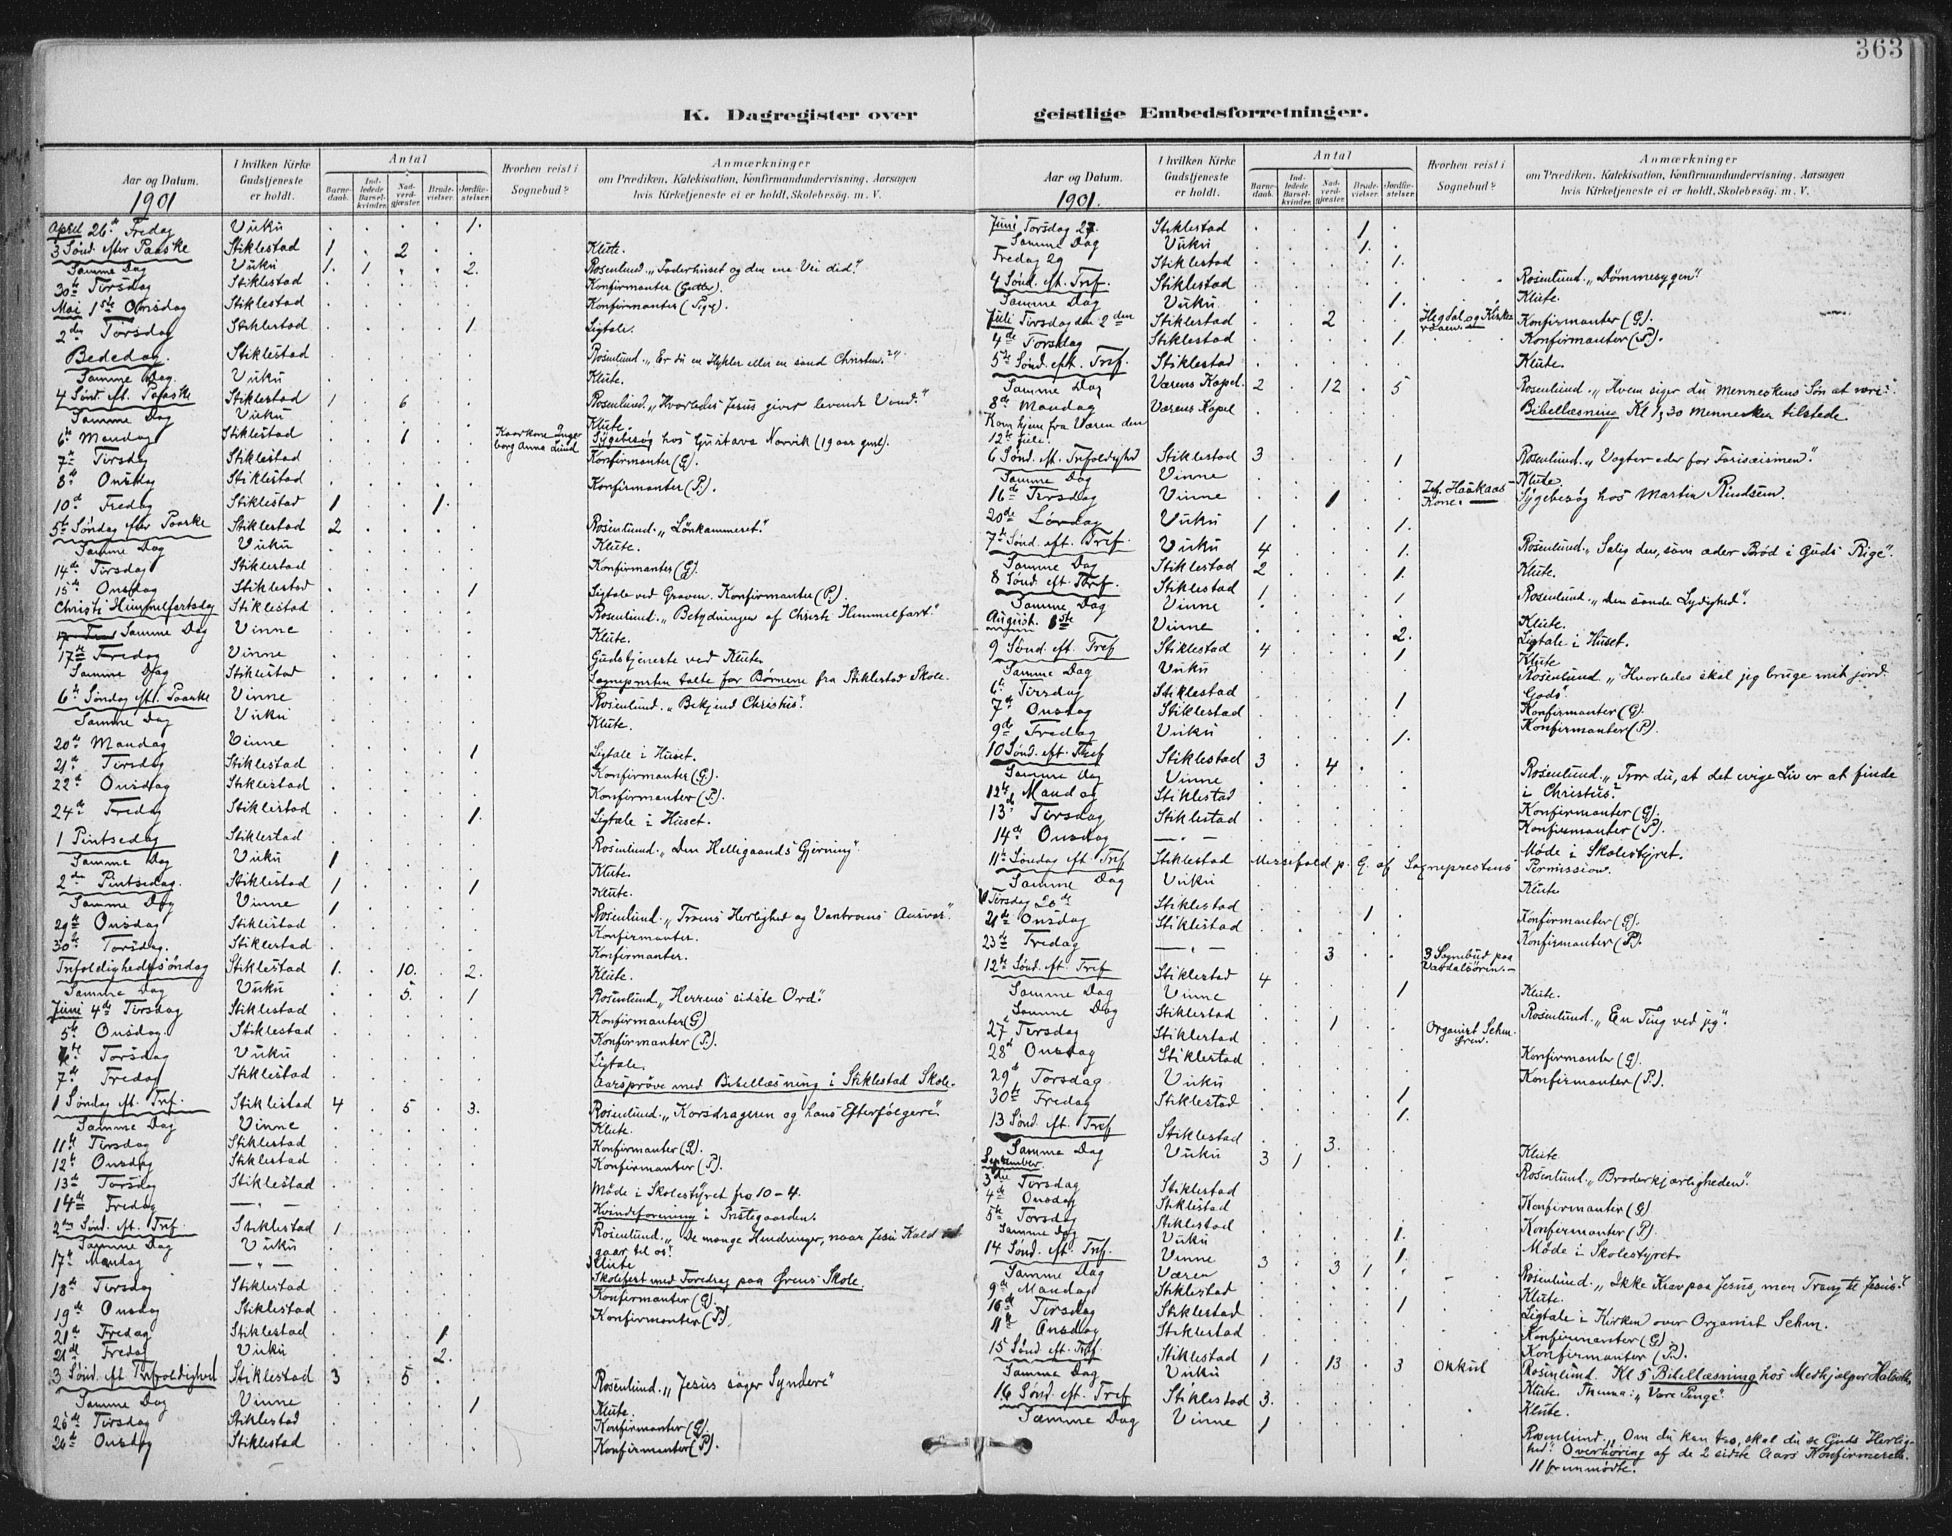 363
K. Dagregister over geistlige Embedsforretninger.
Aar og Datum.
1901
I hvilken Kirke Gudstjeneste er holdt.
Antal
Barne-daab.
Ind-ledede Barsel-kvinder.
Nad-verd-gjæster.
Brude-vielser.
Jordfæ-stelser.
Hvorhen reist i Sognebud?
Anmærkninger
om Prædiken, Katekisation, Konfirmandundervisning, Aarsagen
hvis Kirketjeneste ei er holdt, Skolebesøg. m. V.
April 26de Fredag Vuku 1.
3 Sønd. efter Paaske Stiklestad 1 2 Klute.
Samme Dag Vuku 1. 1 2. Rosenlund. „Faderhuset og den ene Vei did."
30te Tirsdag Stiklestad Konfirmanter (Gutter).
Mai 1ste Onsdag Stiklestad Konfirmanter (Piger).
2den Torsdag Stiklestad 1. Ligtale.
Bededag. Stiklestad Rosenlund. „Er du en Hykler eller en sand Christen?"
Samme Dag. Vuku Klute.
4 Sønd. eft. Paaske Stiklestad 1 6 Rosenlund. „Hvorledes Jesus giver levende Vand."
Samme Dag Vuku Klute.
6te Mandag Stiklestad 1 Kaarkone Inge-borg Anna Lund Sygebesøg hos Gustava Norvik (19 aar gml).
7de Tirsdag Stiklestad Konfirmanter (G).
8de Onsdag Stiklestad Konfirmanter (P).
10d Fredag Stiklestad 1 1.
5te Søndag efter Paaske Stiklestad 2 Rosenlund. „Lønkammeret."
Samme Dag Vuku Klute.
14de Tirsdag Stiklestad Konfirmanter (G).
15de Onsdag Stiklestad 1 Ligtale ved Graven. Konfirmanter (P.).
Christi Himmelfartsdag Stiklestad Rosenlund. „Betydningen af Christi Himmelfart."
Samme Dag Vinne Klute.
17de Fredag Vinne Gudstjeneste ved Klute.
Samme Dag Stiklestad Sognepresten talte for Børnene fra Stiklestad Skole.
6te Søndag eft. Paaske Vinne Rosenlund. „Bekjend Christus."
Samme Dag Vuku Klute.
20de Mandag Vinne 1 Ligtale i Huset.
21de Tirsdag Stiklestad Konfirmanter (G).
22de Onsdag Stiklestad Konfirmanter (P.).
24de Fredag Stiklestad 1. Ligtale i Huset.
1 Pintsedag Stiklestad Rosenlund. „Den Helligaands Gjerning".
Samme Dag Vuku 1 Klute.
2den Pintsedag. Stiklestad 1 1 Klute.
Samme Dag Vinne 1 Rosenlund. „Troens Herlighed og Vantroens Ansvar".
29de Onsdag Stiklestad Konfirmanter.
30te Torsdag. Stiklestad Konfirmanter.
Trefoldighedssøndag Stiklestad 1. 10. 2. Klute.
Samme Dag Vuku 5. 1 Rosenlund „Herrens sidste Ord."
Juni 4de Tirsdag Stiklestad Konfirmanter (G)
5te Onsdag. Stiklestad Konfirmanter (P).
6te Torsdag Vuku Ligtale.
7de Fredag Stiklestad Aarsprøve med Bibellæsning i Stiklestad Skole.
1 Søndag eft. Tref. Stiklestad 4 5 3. Rosenlund. „Korsdrageren og hans Efterfølgere".
Samme Dag Vinne Klute.
11te Tirsdag Stiklestad Konfirmanter (G).
12te Onsdag Stiklestad Konfirmanter (P).
13de Torsdag Stiklestad Møde i Skolestyret fra 10-4.
14de Fredag — „ — Kvindeforening i Prestegaarden.
2den Sønd. eft. Tref. Stiklestad 1 Rosenlund. „De mange Hindringer, naar Jesu Kald
Samme Dag Vuku gaar til os". Klute
17de Mandag — „ — Skolefest med Foredrag paa Ørens Skole.
18de Tirsdag Stiklestad Konfirmanter (G).
19de Onsdag Stiklestad Konfirmanter (P).
21de Fredag Stiklestad 1.
21de Fredag Vuku 2.
3 Sønd. eft Trefoldighed Stiklestad 3 5 Rosenlund. „Jesus søger Syndere"
Samme Dag Vinne 1 Klute.
25de Tirsdag Stiklestad Konfirmanter (G).
26de Onsdag Stiklestad Konfirmanter (P).
Aar og Datum.
1901.
I hvilken Kirke Gudstjeneste er holdt.
Antal
Barne-daab.
Ind-ledede Barsel-kvinder.
Nad-verd-gjæster.
Brude-vielser.
Jordfæ-stelser.
Hvorhen reist i Sognebud?
Anmærkninger
om Prædiken, Katekisation, Konfirmandundervisning, Aarsagen
hvis Kirketjeneste ei er holdt, Skolebesøg. m. V.
Juni Torsdag 27 Stiklestad 1
Samme Dag Vuku 1.
Fredag 29 Stiklestad 1.
4 Sønd. eft. Tref. Stiklestad Rosenlund. „Dømmesygen"
Samme Dag Vuku 1. Klute.
Juli Tirsdag den 2den Stiklestad 2 Konfirmanter (G).
4de Torsdag Stiklestad 1. Konfirmanter (P).
5te Sønd. eft. Tref. Stiklestad Klute.
Samme Dag Værens Kapel. 2 12 5 Rosenlund. „Hvem siger du Menneskens Søn at være".
8de Mandag Værens Kapel Bibellæsning Kl 1, 30 Mennesker tilstede.
Kom hjem fra Væren den
12te Juli.
6 Sønd. eft. Trefoldighed Stiklestad 3 1 Rosenlund. „Vogter eder for Farisæismen".
Samme Dag Vinne Klute.
16de Tirsdag Vinne 1 Haakaas Kone. Sygebesøg hos Martin Rindsem.
20de Lørdag Vuku 1 1.
7de Sønd. eft. Tref. Vuku 4 1. Rosenlund. „Salig den, som æder Brød i Guds Rige".
Samme Dag Stiklestad 2 Klute.
8 Sønd eft. Tref. Stiklestad 1 1. Rosenlund. „Den sande Lydighed".
Samme Dag Vinne 1 Klute.
August. 1ste Vinne 2. Ligtale i Huset.
9 Sønd. eft. Tref Stiklestad 4 1 Klute
Samme Dag Vuku Rosenlund „Hvorledes skal jeg bruge mit jord. Gods".
6te Tirsdag Stiklestad Konfirmanter (G).
7de Onsdag Stiklestad 1 Konfirmanter (P).
9de Fredag Vuku 1.
10 Sønd. eft. Tref Stiklestad 3 4 Rosenlund. „Tror du, at det evige Liv er at finde
Samme Dag Vinne i Christus?"
12te Mandag Stiklestad Konfirmanter (G).
13de Tirsdag Stiklestad Konfirmanter (P).
14de Onsdag — „ — Møde i Skolestyret.
11te Søndag eft Tref Stiklestad Messefald p. G. af Sogneprestens Permission.
Samme Dag Vuku Klute
Tirsdag 20de Stiklestad Konfirmanter (G).
21de Onsdag Stiklestad 1 Konfirmanter (P).
23de Fredag — „ — 3 3 Sognebud paa Værdalsøren.
12te Sønd. eft. Tref Stiklestad 4 Klute.
Samme Dag Vinne 1 Rosenlund. „En Ting ved jeg".
Samme Dag Stiklestad 1 Organist Sehm.
27de Tirsdag Stiklestad Konfirmanter (G).
28de Onsdag Stiklestad Konfirmanter (P).
29de Torsdag Vuku 1
30te Fredag Stiklestad 1.
13 Sønd. eft. Tref Stiklestad 3. Klute
Samme Dag Vuku 3 1 Rosenlund. „Broderkjærligheden".
September
3die Tirsdag Stiklestad Konfirmanter (G)
4de Onsdag Stiklestad Konfirmanter (P).
5te Torsdag Stiklestad Møde i Skolestyret.
Samme Dag Vuku 1.
14 Sønd. eft. Tref. Vinne 3 3 1. Rosenlund. „Ikke Krav paa Jesus, men Trang til Jesus".
Samme Dag Væren 1 Klute.
9de Mandag Stiklestad Ligtale i Kirken over Organist Sehm.
10de Tirsdag Stiklestad 1 Konfirmanter (G)
11te Onsdag Stiklestad Konfirmanter (P.)
15 Sønd. eft. Tref. Stiklestad 1 13 3 Okkul Rosenlund. Kl 5 Bibellæsning hos Medhjælper
Samme Dag Vuku Klute. Thema: „Vore Penge".
16 Sønd. eft. Tref Stiklestad 3. Klute.
Samme Dag Vinne 1 Rosenlund. „Om du kan tro, skal du se Guds Herlig-
hed." Overhøring af de 2 sidste Aars Konfirmerede.
11 fremmødte.